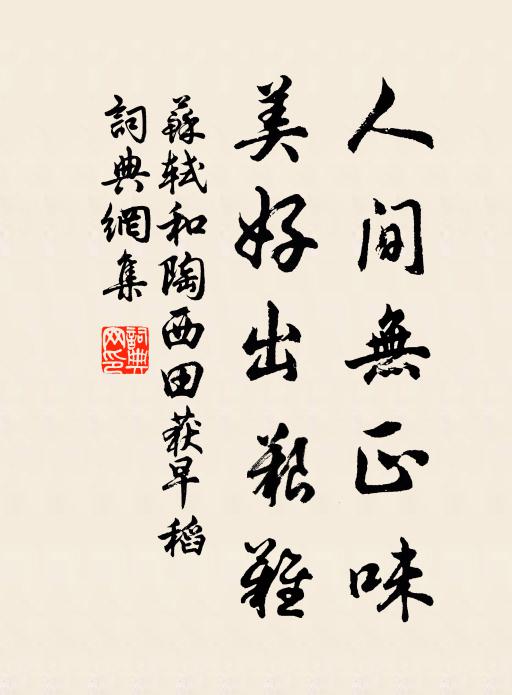 人間無正味
美好出艱難
蘇軾和陶西田获早稻
詞典網集
詞典
网印